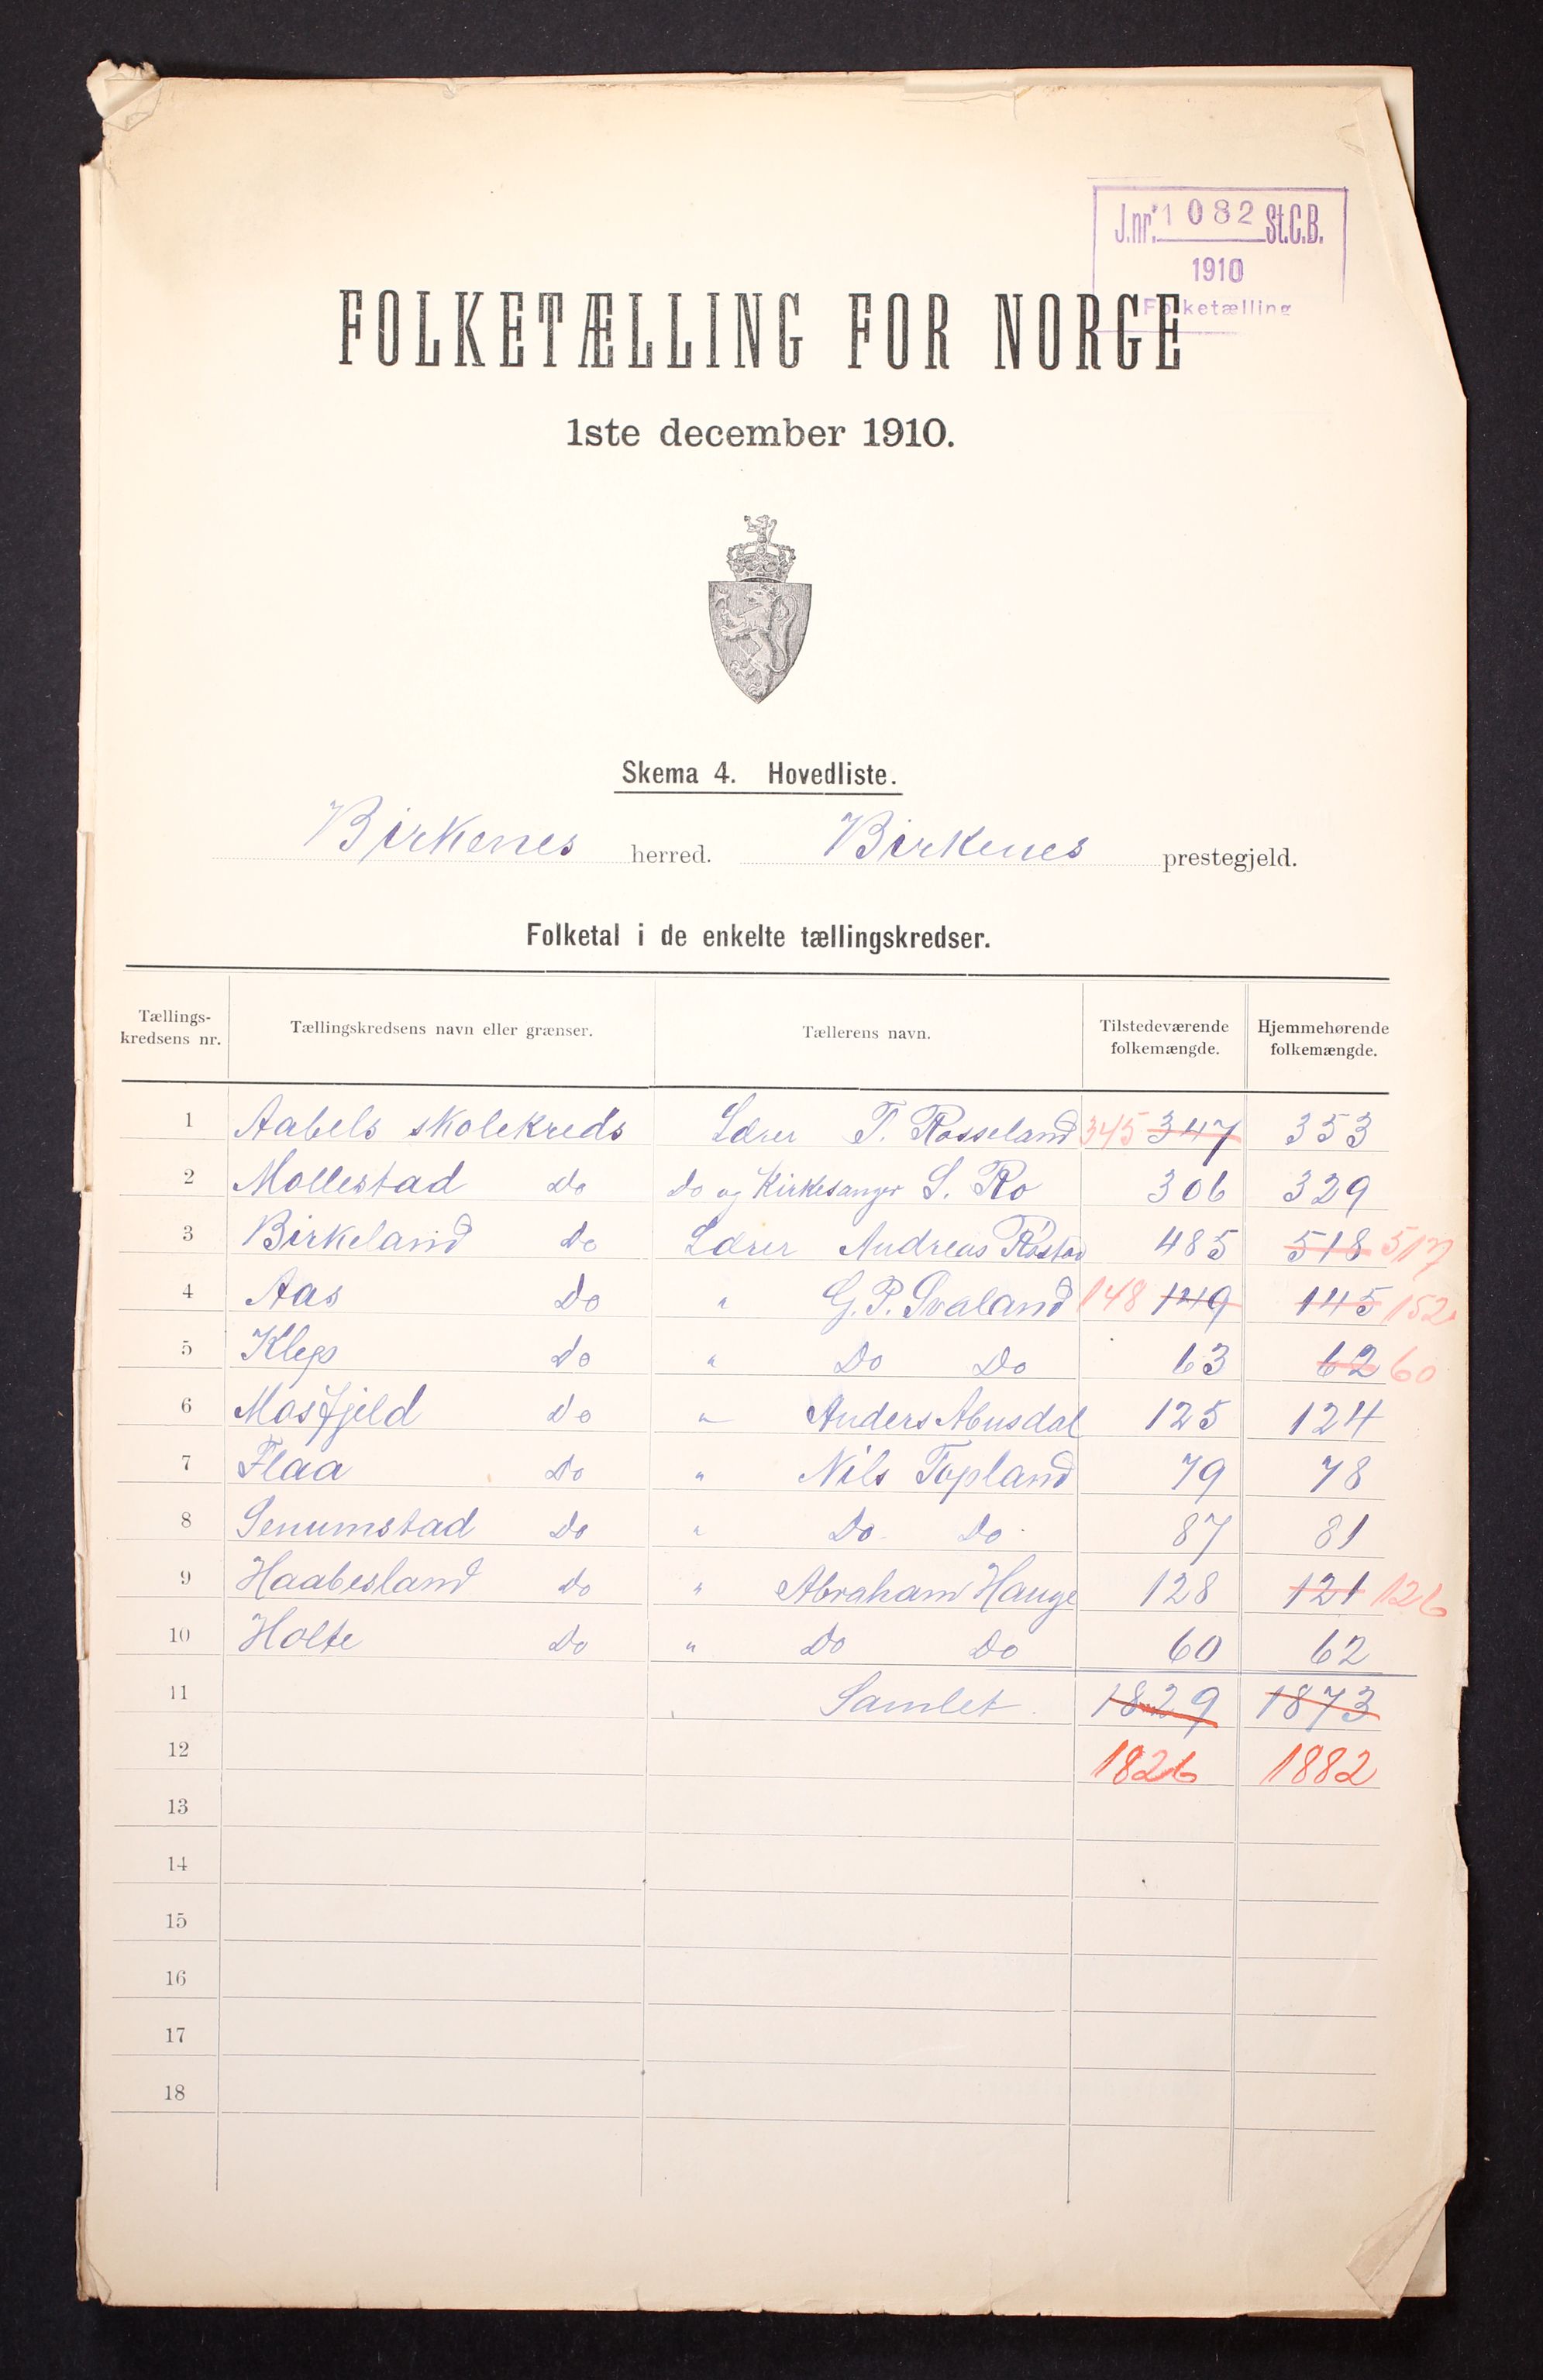 J.nr. 1082 St.C.B.
1910
Folketælling
FOLKETÆLLING FOR NORGE
1ste december 1910.
Skema 4. Hovedliste.
Birkenes herred. Birkenes prestegjeld.
Folketal i de enkelte tællingskredser.
Tællings-kredsens nr. Tællingskredsens navn eller grænser. Tællerens navn. Tilstedeværende folkemængde. Hjemmehørende folkemængde.
1 Aabels skolekreds Lærer T. Rosseland 345 347 353
2 Mollestad do do og Kirkesanger S. Ro 306 329
3 Birkeland do Lærer Andreas 485 518 517
4 Aas do " G. P. Svaland 148 149 145 152
5 Klep do " do do 63 62 60
6 Mosfjeld do " Anders Abusdal 125 124
7 Flaa do " Nils Topland 79 78
8 Senumstad do " do do 87 81
9 Haabesland do " Abraham Hauge 128 121 126
10 Holte do " do do 60 62
11 Samlet 1829 1873
12 1826 1882
13
14
15
16
17
18